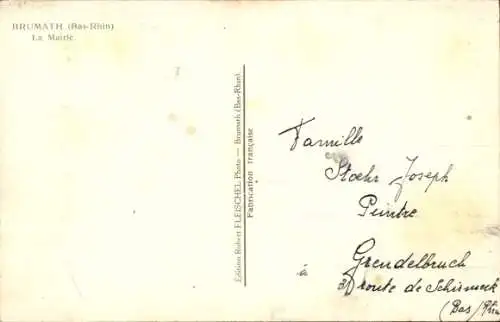 BRUMATH (Bas-Rhin)
La Mairie.
Edition Robert FLEISCHEL Photo — Brumath (Bas-Rhin).
Fabrication française
Famille
Stoehr Joseph
Peintre
à Grendelbruch
route de Schirmeck
(Bas/Rhin